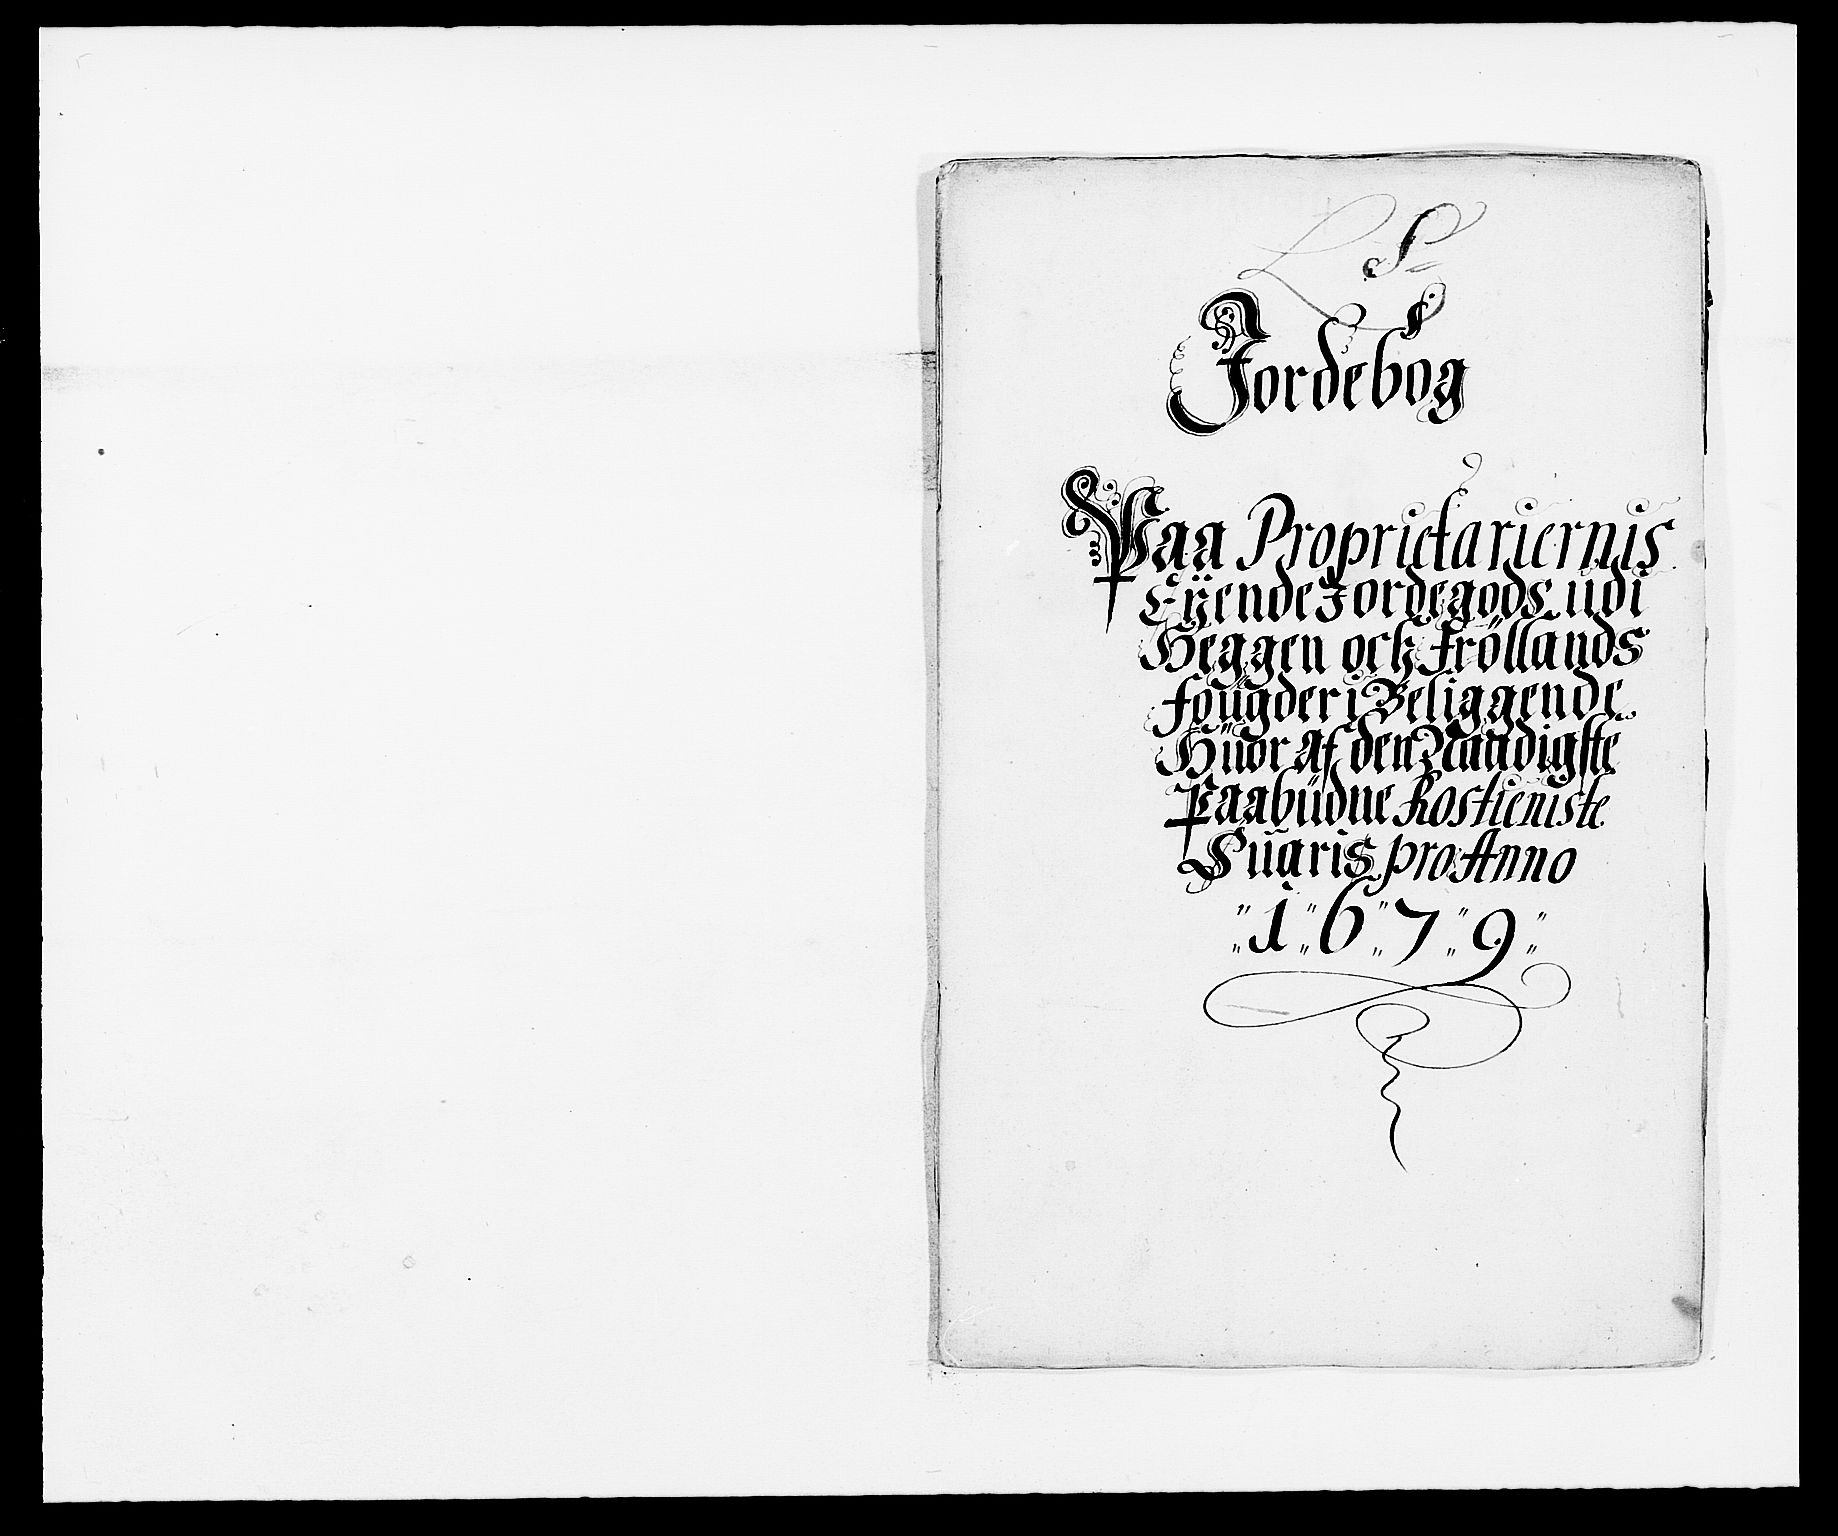 L S
Jordebog
Paa Proprietariernis
Eÿende Jordegods udi
Heggen och Fröllands
fougderi Beliggende
Huor af den Naadigste
Paabudne Rostieniste
Suaris pro Anno
" 1 " 6 " 7 " 9 "